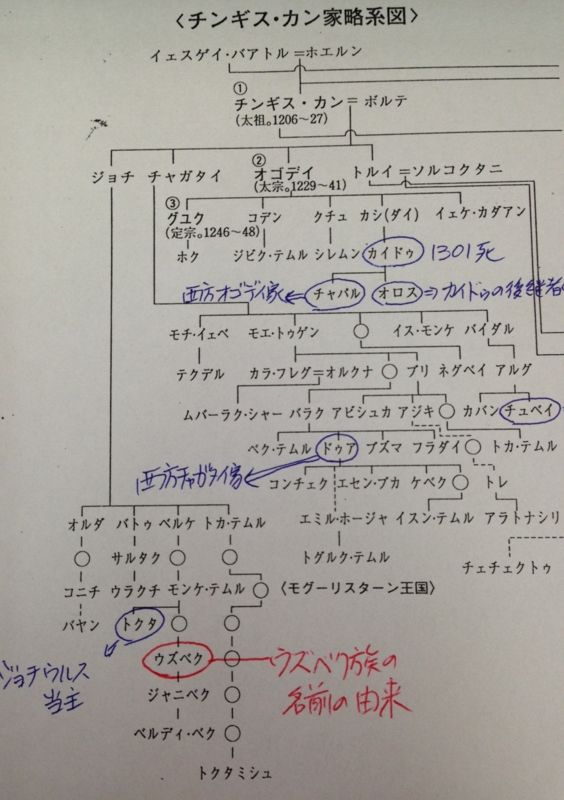 〈チンギス・カン家略系図〉
イェスゲイ・バアトル＝ホエルン
①
チンギス・カン＝ボルテ
(太祖。1206～27)
ジョチ チャガタイ ②オゴデイ トルイ＝ソルコクタニ
(太宗。1229～41)
③
グユク コデン クチュ カシ(ダイ) イェケ・カダアン
(定宗。1246～48)
ホク ジビク・テムル シレムン カイドゥ 1301死
西方オゴデイ家 チャパル オロス⇒カイドゥの後継者
モチ・イェベ モエ・トゥゲン イス・モンケ バイダル
テクデル カラ・フレグ＝オルクナ ブリ ネグベイ アルグ
ムバーラク・シャー バラク アビシュカ アジキ カバン チュベイ
ベク・テムル ドゥア ブズマ フラダイ トカ・テムル
西方チャガタイ家 コンチェク エセン・ブカ ケベク トレ
オルダ バトゥ ベルケ トカ・テムル エミル・ホージャ イスン・テムル アラトナシリ
サルタク トグルク・テムル チェチェクトゥ
コニチ ウラクチ モンケ・テムル 〈モグーリスターン王国〉
バヤン トクタ
ジョチウルス
当主
ウズベク ウズベク族の
名前の由来
ジャニベク
ベルディ・ベク
トクタミシュ